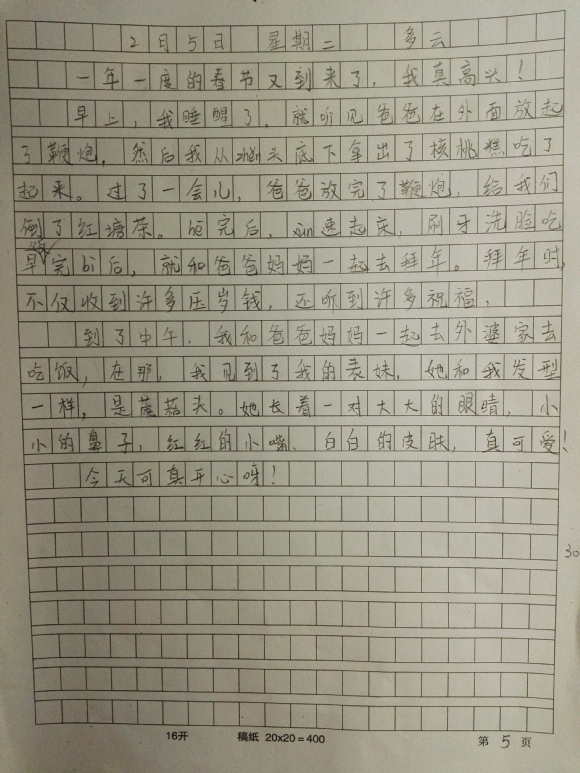 2月5日 星期二 多云
一年一度的春节又到来了，我真高兴！
早上，我睡醒了，就听见爸爸在外面放起
了鞭炮，然后我从zhěn头底下拿出了核桃糕吃了
起来。过了一会儿，爸爸放完了鞭炮，给我们
倒了红塘茶。后，xùn速起床，刷牙洗脸吃
早饭
完bì后，就和爸爸妈妈一起去拜年。拜年时，
不仅收到许多压岁钱，还听到许多祝福，
到了中午，我和爸爸妈妈一起去外婆家去
吃饭，在那，我见到了我的表妹，她和我发型
一样，是蘑菇头。她长着一对大大的眼睛，小
小的鼻子，红红的小嘴、白白的皮肤，真可爱！
今天可真开心呀！
30
16开 稿纸 20x20=400 第5页